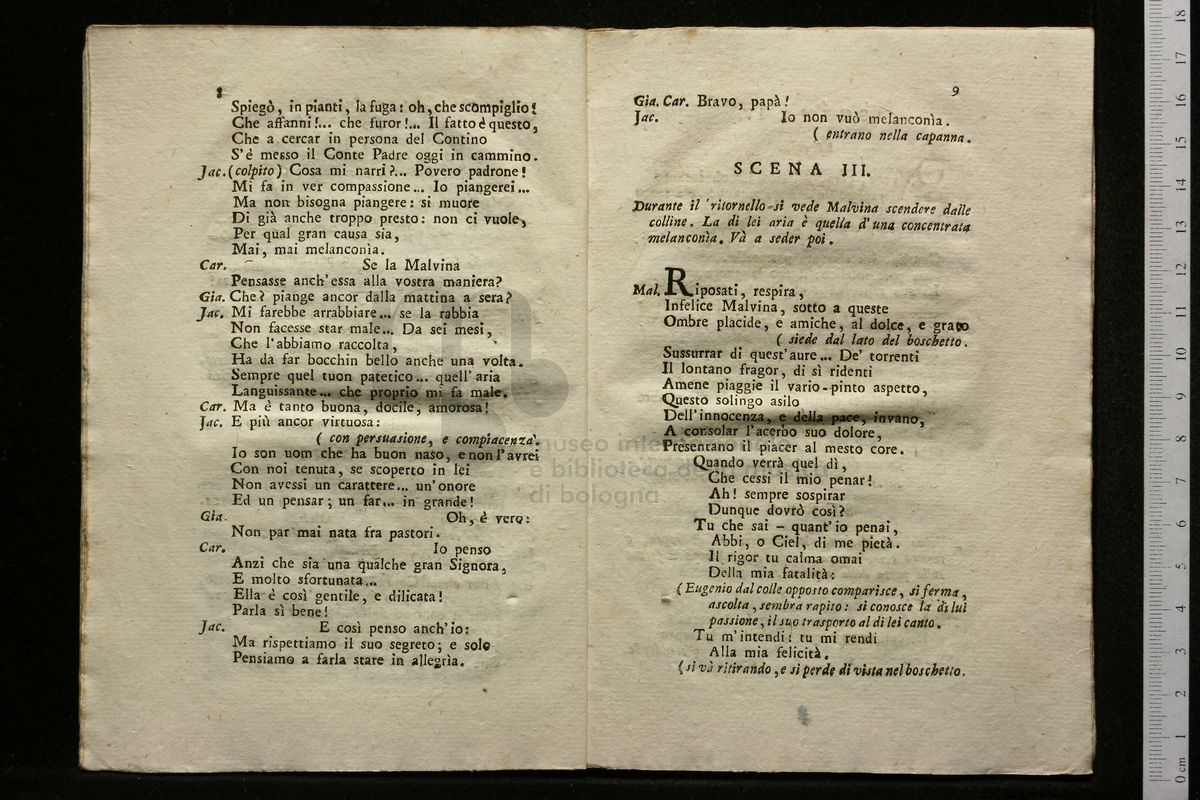 8
Spiegò, in pianti, la fuga: oh, che scompiglio!
Che affanni!... che furor!... Il fatto è questo,
Che a cercar in persona del Contino
S'è messo il Conte Padre oggi in cammino.
Jac. (colpito) Cosa mi narri?... Povero padrone!
Mi fa in ver compassione... Io piangerei...
Ma non bisogna piangere: si muore
Di già anche troppo presto: non ci vuole,
Per qual gran causa sia,
Mai, mai melanconìa.
Car. Se la Malvina
Pensasse anch'essa alla vostra maniera?
Gia. Che? piange ancor dalla mattina a sera?
Jac. Mi farebbe arrabbiare... se la rabbia
Non facesse star male... Da sei mesi,
Che l'abbiamo raccolta,
Ha da far bocchin bello anche una volta.
Sempre quel tuon patetico... quell'aria
Languissante... che proprio mi fa male.
Car. Ma è tanto buona, docile, amorosa!
Jac. E più ancor virtuosa:
( con persuasione, e compiacenza.
Io son uom che ha buon naso, e non l'avrei
Con noi tenuta, se scoperto in lei
Non avessi un carattere... un'onore
Ed un pensar; un far... in grande!
Gia. Oh, è vero:
Non par mai nata fra pastori.
Car. Io penso
Anzi che sia una qualche gran Signora,
E molto sfortunata...
Ella è così gentile, e dilicata!
Parla sì bene!
Jac. E così penso anch'io:
Ma rispettiamo il suo segreto; e solo
Pensiamo a farla stare in allegrìa.
9
Gia. Car. Bravo, papà!
Jac. Io non vuò melanconìa.
( entrano nella capanna.
SCENA III.
Durante il ritornello si vede Malvina scendere dalle
colline. La di lei aria è quella d'una concentrata
melanconìa. Và a seder poi.
Mal. Riposati, respira,
Infelice Malvina, sotto a queste
Ombre placide, e amiche, al dolce, e grato
( siede dal lato del boschetto.
Sussurrar di quest'aure... De' torrenti
Il lontano fragor, di sì ridenti
Amene piaggie il vario-pinto aspetto,
Questo solingo asilo
Dell'innocenza, e della pace, invano,
A consolar l'acerbo suo dolore,
Presentano il piacer al mesto core.
Quando verrà quel dì,
Che cessi il mio penar!
Ah! sempre sospirar
Dunque dovrò così?
Tu che sai - quant'io penai,
Abbi, o Ciel, di me pietà.
Il rigor tu calma omai
Della mia fatalità:
(Eugenio dal colle opposto comparisce, si ferma,
ascolta, sembra rapito: si conosce la di lui
passione, il suo trasporto al di lei canto.
Tu m'intendi: tu mi rendi
Alla mia felicità.
(si và ritirando, e si perde di vista nel boschetto.
museo internazionale
e biblioteca della musica
di bologna
0 cm 1 2 3 4 5 6 7 8 9 10 11 12 13 14 15 16 17 18